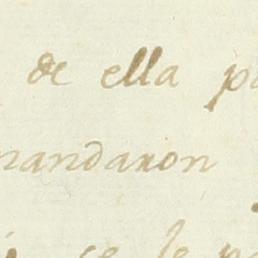 de ella p
mandaron
se le p